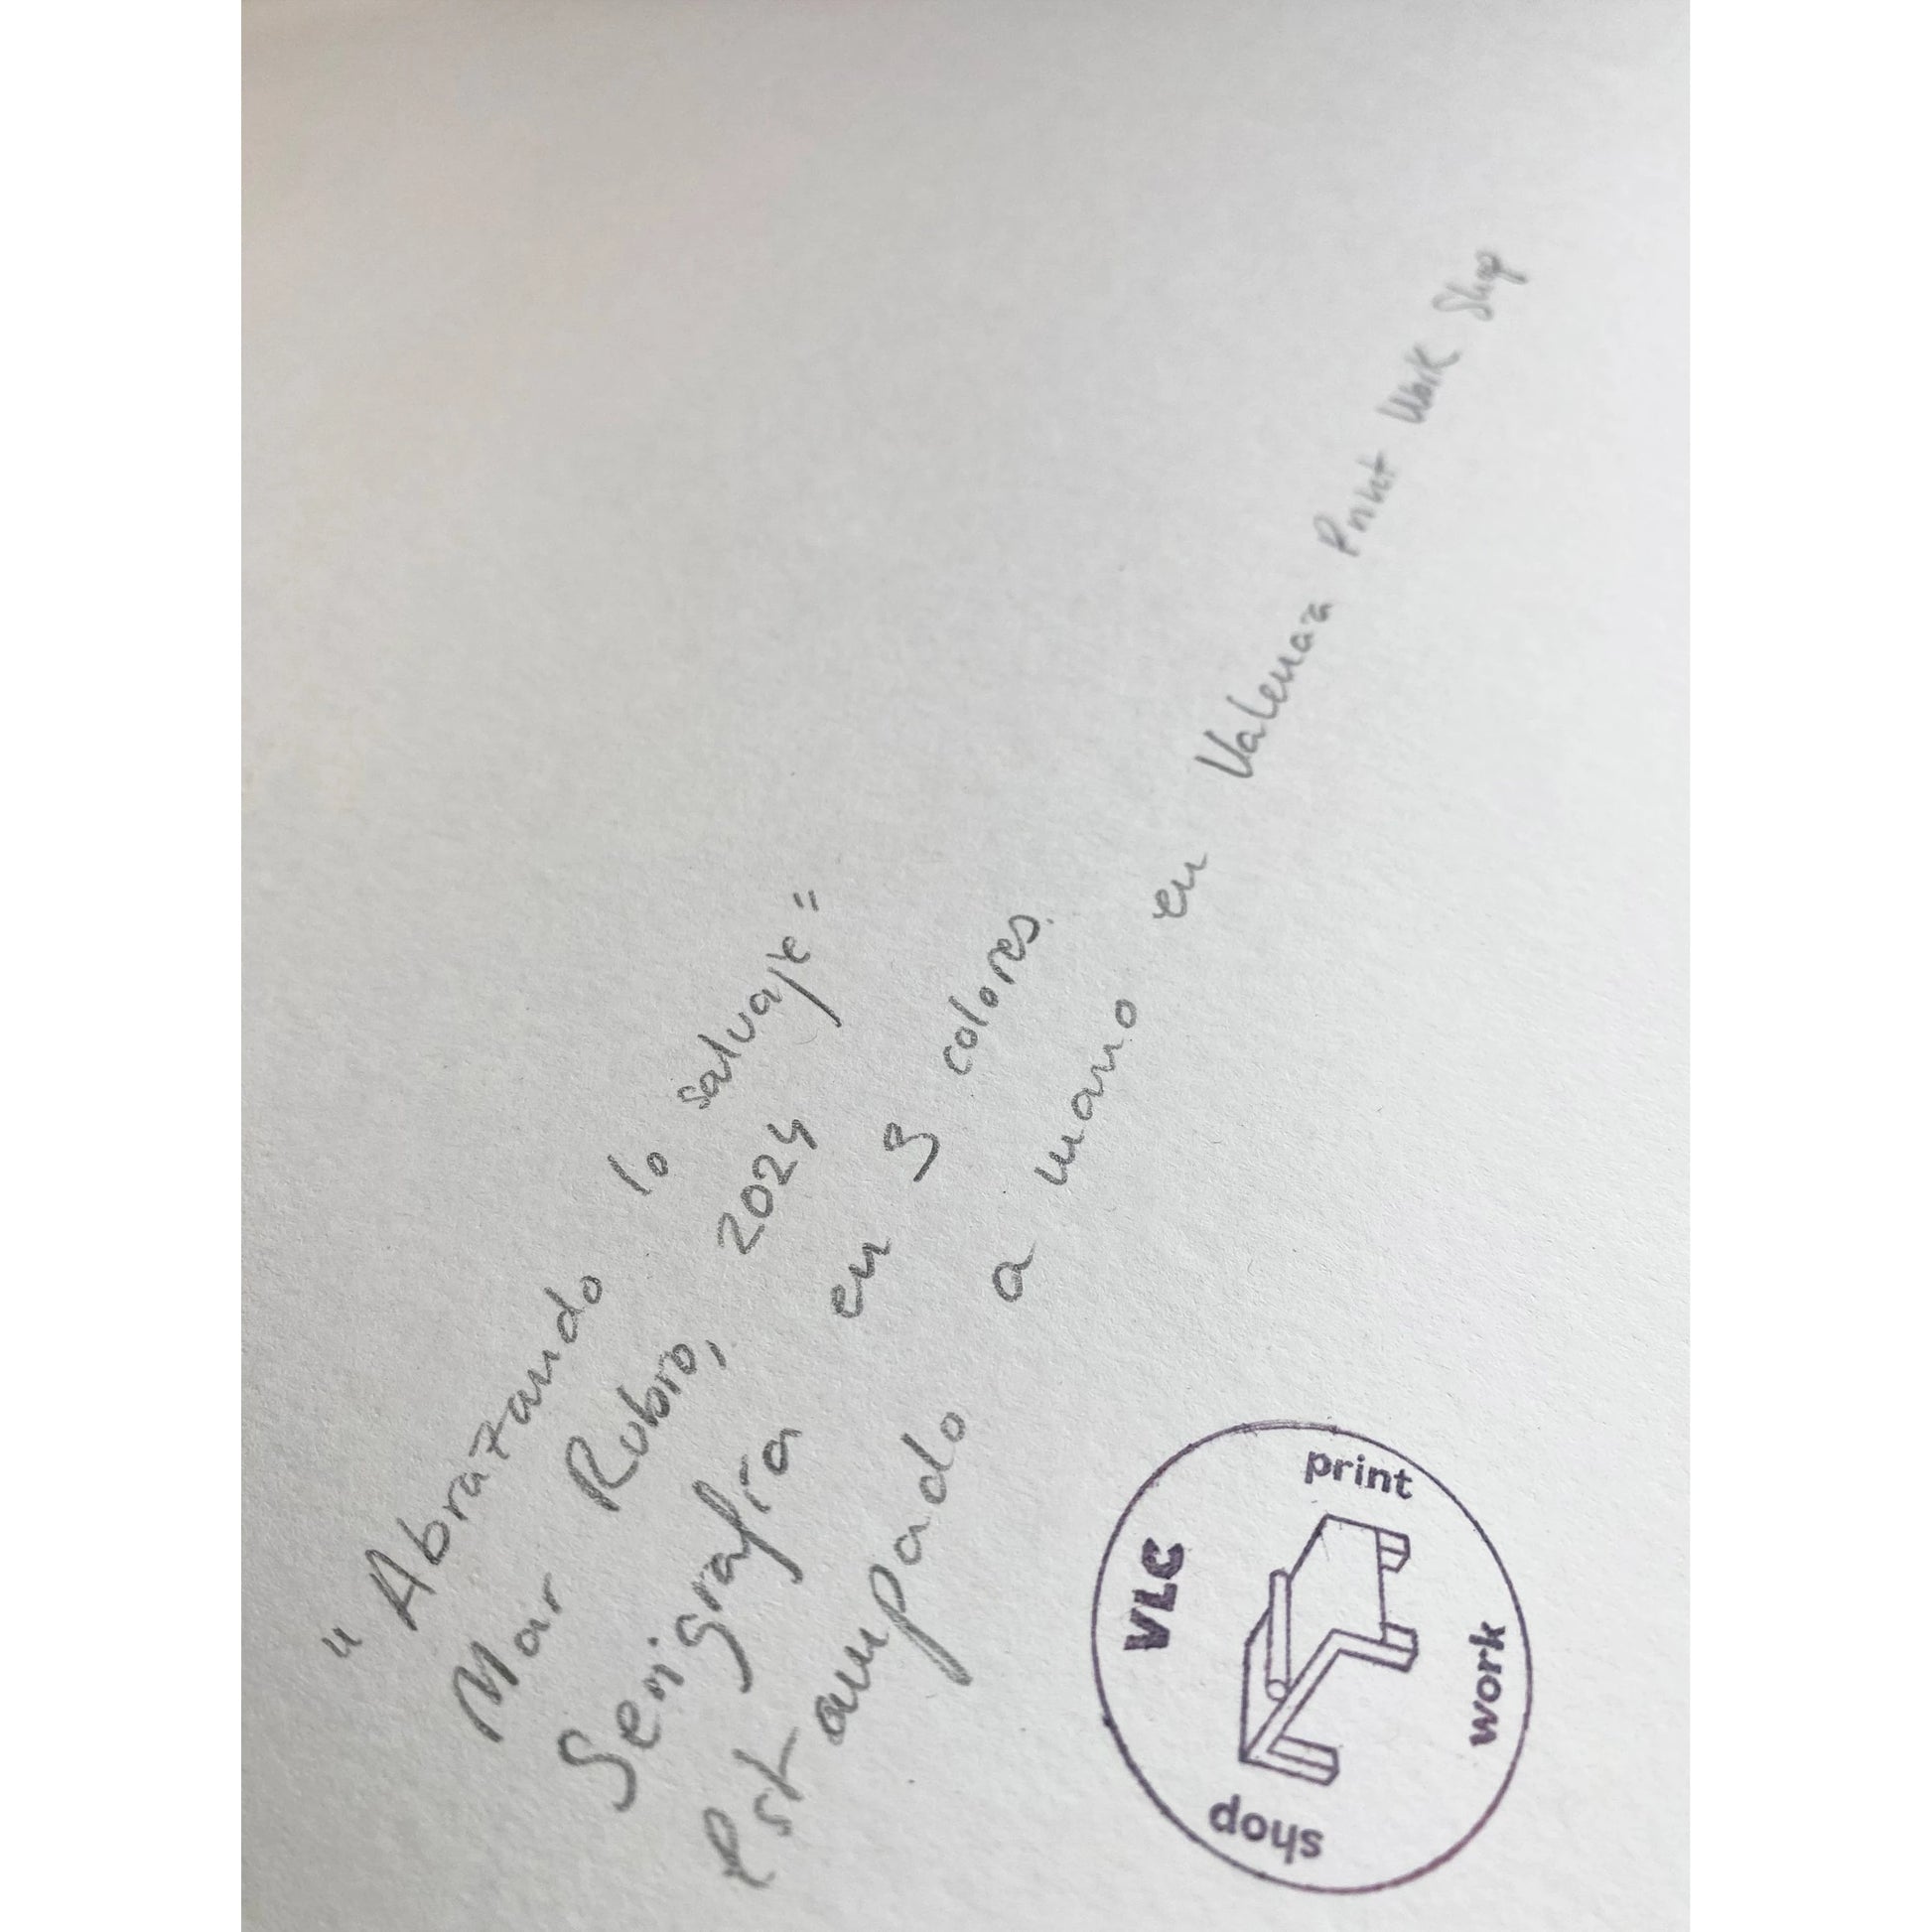 "Abrazando lo salvaje"
Mar Rubio, 2024
Serigrafía en 3 colores.
Estampado a mano en Valencia Print Work Shop
VLC
print
work
shop